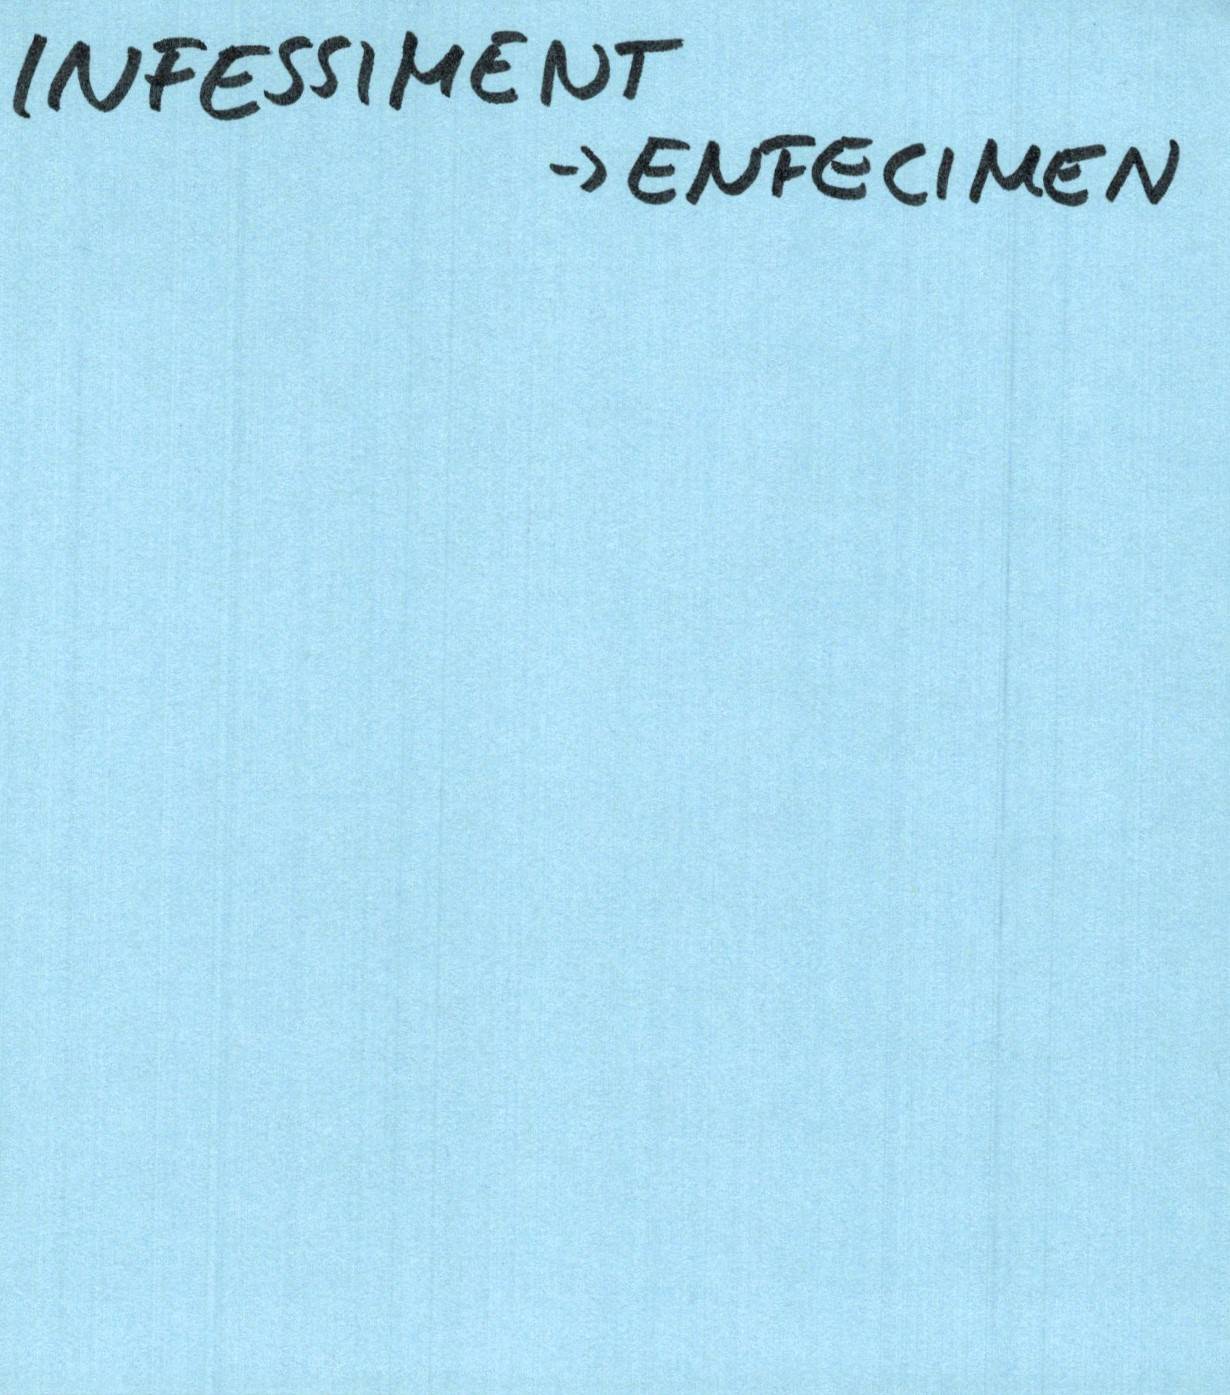 INFESSIMENT
-> ENFECIMEN